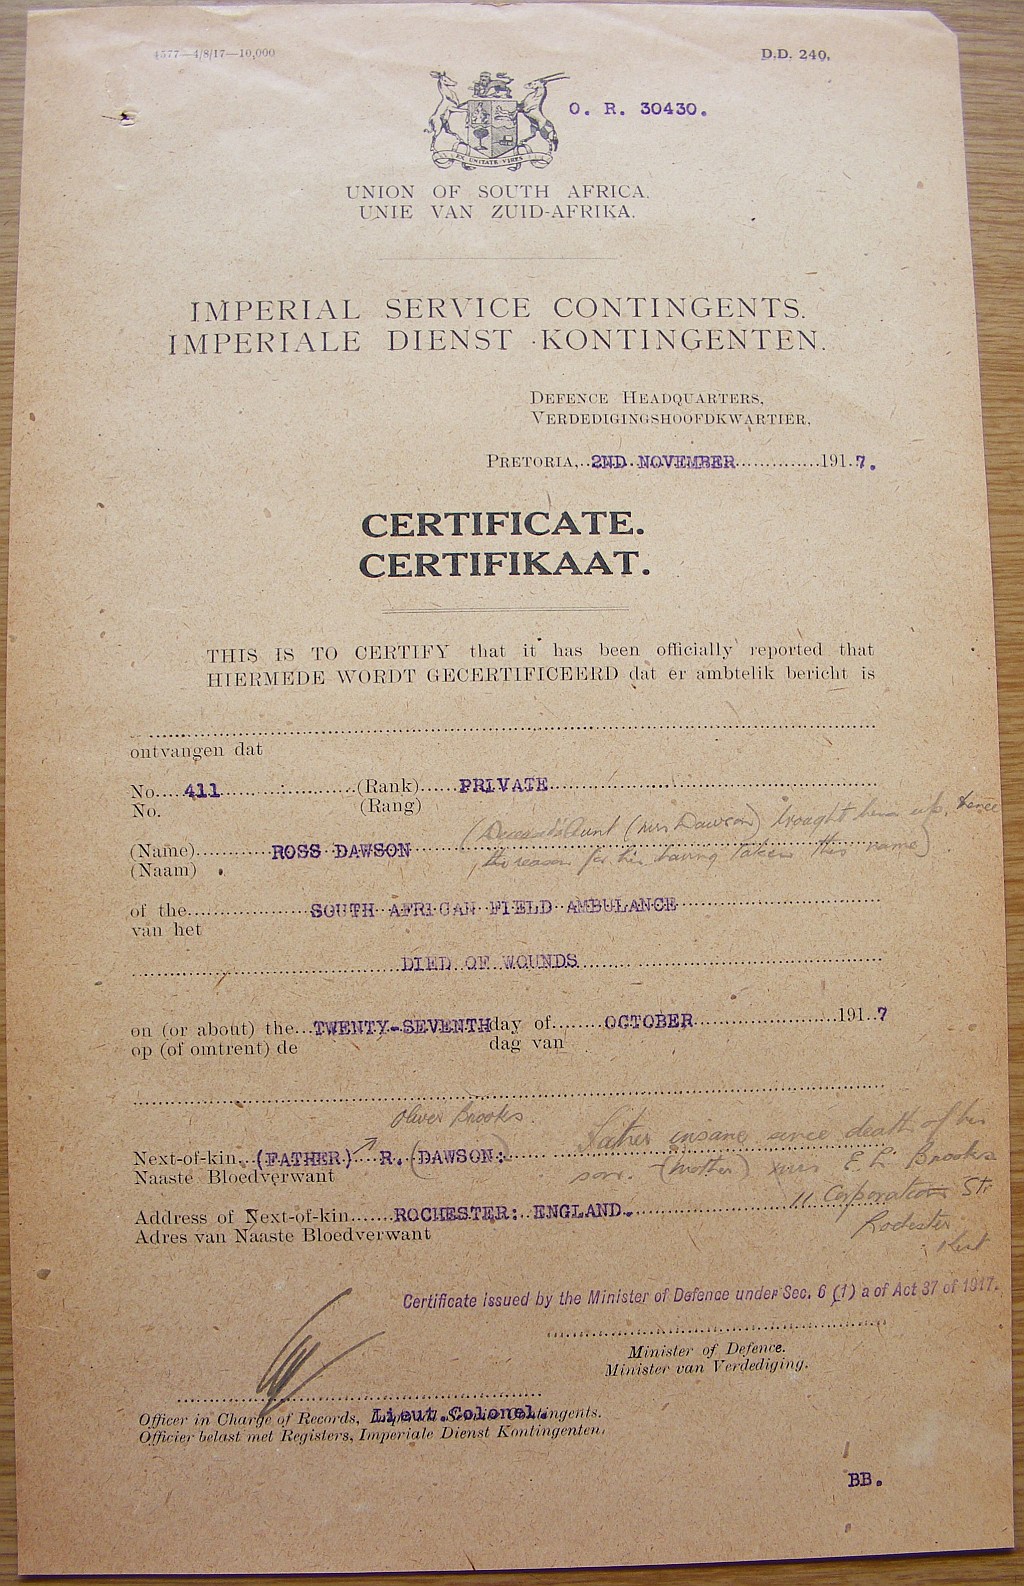 4577—4/8/17—10,000
D.D. 240.
O. R. 30430.
EX UNITATE VIRES
UNION OF SOUTH AFRICA.
UNIE VAN ZUID-AFRIKA.
IMPERIAL SERVICE CONTINGENTS.
IMPERIALE DIENST KONTINGENTEN.
DEFENCE HEADQUARTERS,
VERDEDIGINGSHOOFDKWARTIER,
PRETORIA, 2ND NOVEMBER 1917.
CERTIFICATE.
CERTIFIKAAT.
THIS IS TO CERTIFY that it has been officially reported that
HIERMEDE WORDT GECERTIFICEERD dat er ambtelik bericht is
ontvangen dat
No. 411 (Rank) PRIVATE
No. (Rang)
(Deceased's Aunt (Mrs Dawson) brought him up, hence
(Name) ROSS DAWSON the reason for his having taken this name)
(Naam)
of the SOUTH AFRICAN FIELD AMBULANCE
van het
DIED OF WOUNDS
on (or about) the TWENTY-SEVENTH day of OCTOBER 1917
op (of omtrent) de dag van
Oliver Brooks. Father insane since death of his
Next-of-kin (FATHER) R. (DAWSON: son. (Mother) Mrs E. L. Brooks
Naaste Bloedverwant
11 Corporation Str
Address of Next-of-kin ROCHESTER: ENGLAND. Rochester
Adres van Naaste Bloedverwant Kent
Certificate issued by the Minister of Defence under Sec. 6 (1) a of Act 37 of 1917.
Minister of Defence.
Minister van Verdediging.
Lieut. Colonel.
Officer in Charge of Records, Imperial Service Contingents.
Officier belast met Registers, Imperiale Dienst Kontingenten.
BB.